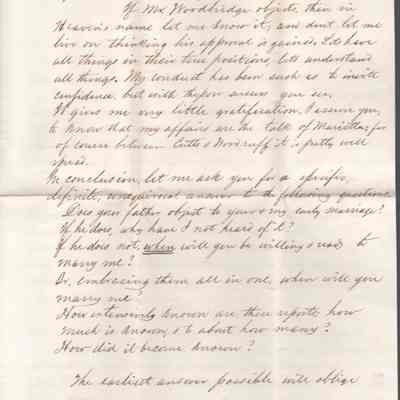 If Mr Woodbridge objects, then in
Heaven's name let me know it, and dont let me
live on thinking his approval is gained. Let's have
all things in their true positions, let's understand
all things. My conduct has been such as to invite
confidence, but with the poor success you see.
It gives me very little gratification, I assure you,
to know that my affairs are the talk of Marietta, for
of course between Cutts & Woodruff it is pretty well
spread.
In conclusion, let me ask you for a specific,
definite, unequivocal answer to the following questions
Does your father object to yours & my early marriage?
If he does, why have I not heard of it?
If he does not, when will you be willing & ready to
marry me?
Or, embracing them all in one, when will you
marry me?
How extensively known are these reports, how
much is known, & to about how many?
How did it become known?
The earliest answer possible will oblige